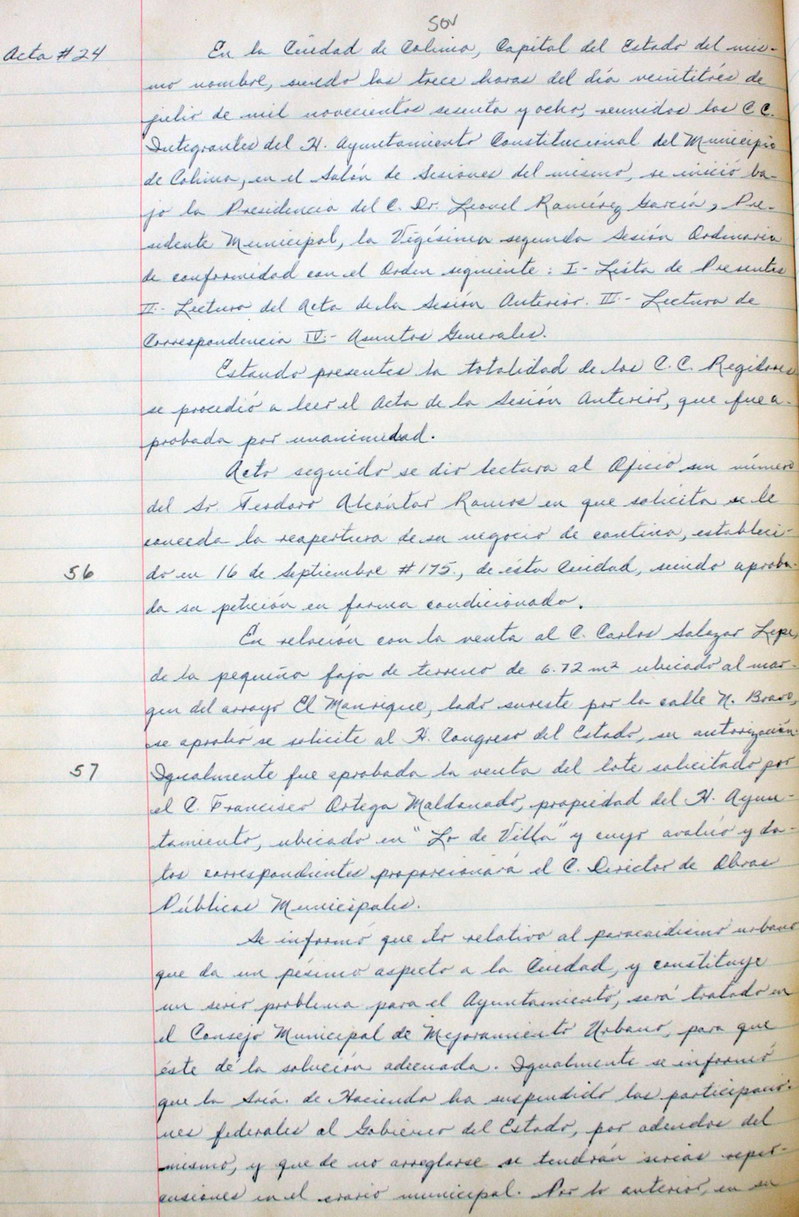 Acta # 24
En la Ciudad de Colima, Capital del Estado del mis-
mo nombre, siendo las trece horas del día veintitrés de
julio de mil novecientos sesenta y ocho, reunidos los C.C.
Integrantes del H. Ayuntamiento Constitucional del Municipio
de Colima, en el Salón de Sesiones del mismo, se inició ba-
jo la Presidencia del C. Dr. Leonel Ramírez García, Pre-
sidente Municipal, la Vigésima segunda Sesión Ordinaria
de conformidad con el Orden siguiente: I- Lista de Presentes
II- Lectura del Acta de la Sesión Anterior. III- Lectura de
Correspondencia IV- Asuntos Generales.
Estando presentes la totalidad de los C.C. Regidores
se procedió a leer el Acta de la Sesión Anterior, que fue a-
probada por unanimidad.
Acto seguido se dio lectura al Oficio sin número
del Sr. Teodoro Alcántar Ramos en que solicita se le
conceda la reapertura de su negocio de cantina, estableci-
56 do en 16 de Septiembre # 175, de ésta Ciudad, siendo aproba-
da su petición en forma condicionada.
En relación con la venta al C. Carlos Salazar Lepe,
de la pequeña faja de terreno de 6.72 m2 ubicado al mar-
gen del arroyo El Manrique, lado sureste por la calle N. Bravo,
se aprobó se solicite al H. Congreso del Estado, su autorización.
57 Igualmente fue aprobada la venta del lote solicitado por
el C. Francisco Ortega Maldonado, propiedad del H. Ayun-
tamiento, ubicado en "Lo de Villa" y cuyo avalúo y da-
tos correspondientes proporcionará el C. Director de Obras
Públicas Municipales.
Se informó que lo relativo al paracaidismo urbano
que da un pésimo aspecto a la Ciudad, y constituye
un serio problema para el Ayuntamiento, será tratado en
el Consejo Municipal de Mejoramiento Urbano, para que
éste dé la solución adecuada. Igualmente se informó
que la Sría. de Hacienda ha suspendido las participacio-
nes federales al Gobierno del Estado, por adeudos del
mismo, y que de no arreglarse se tendrán serias reper-
cusiones en el erario municipal. Por lo anterior, en su